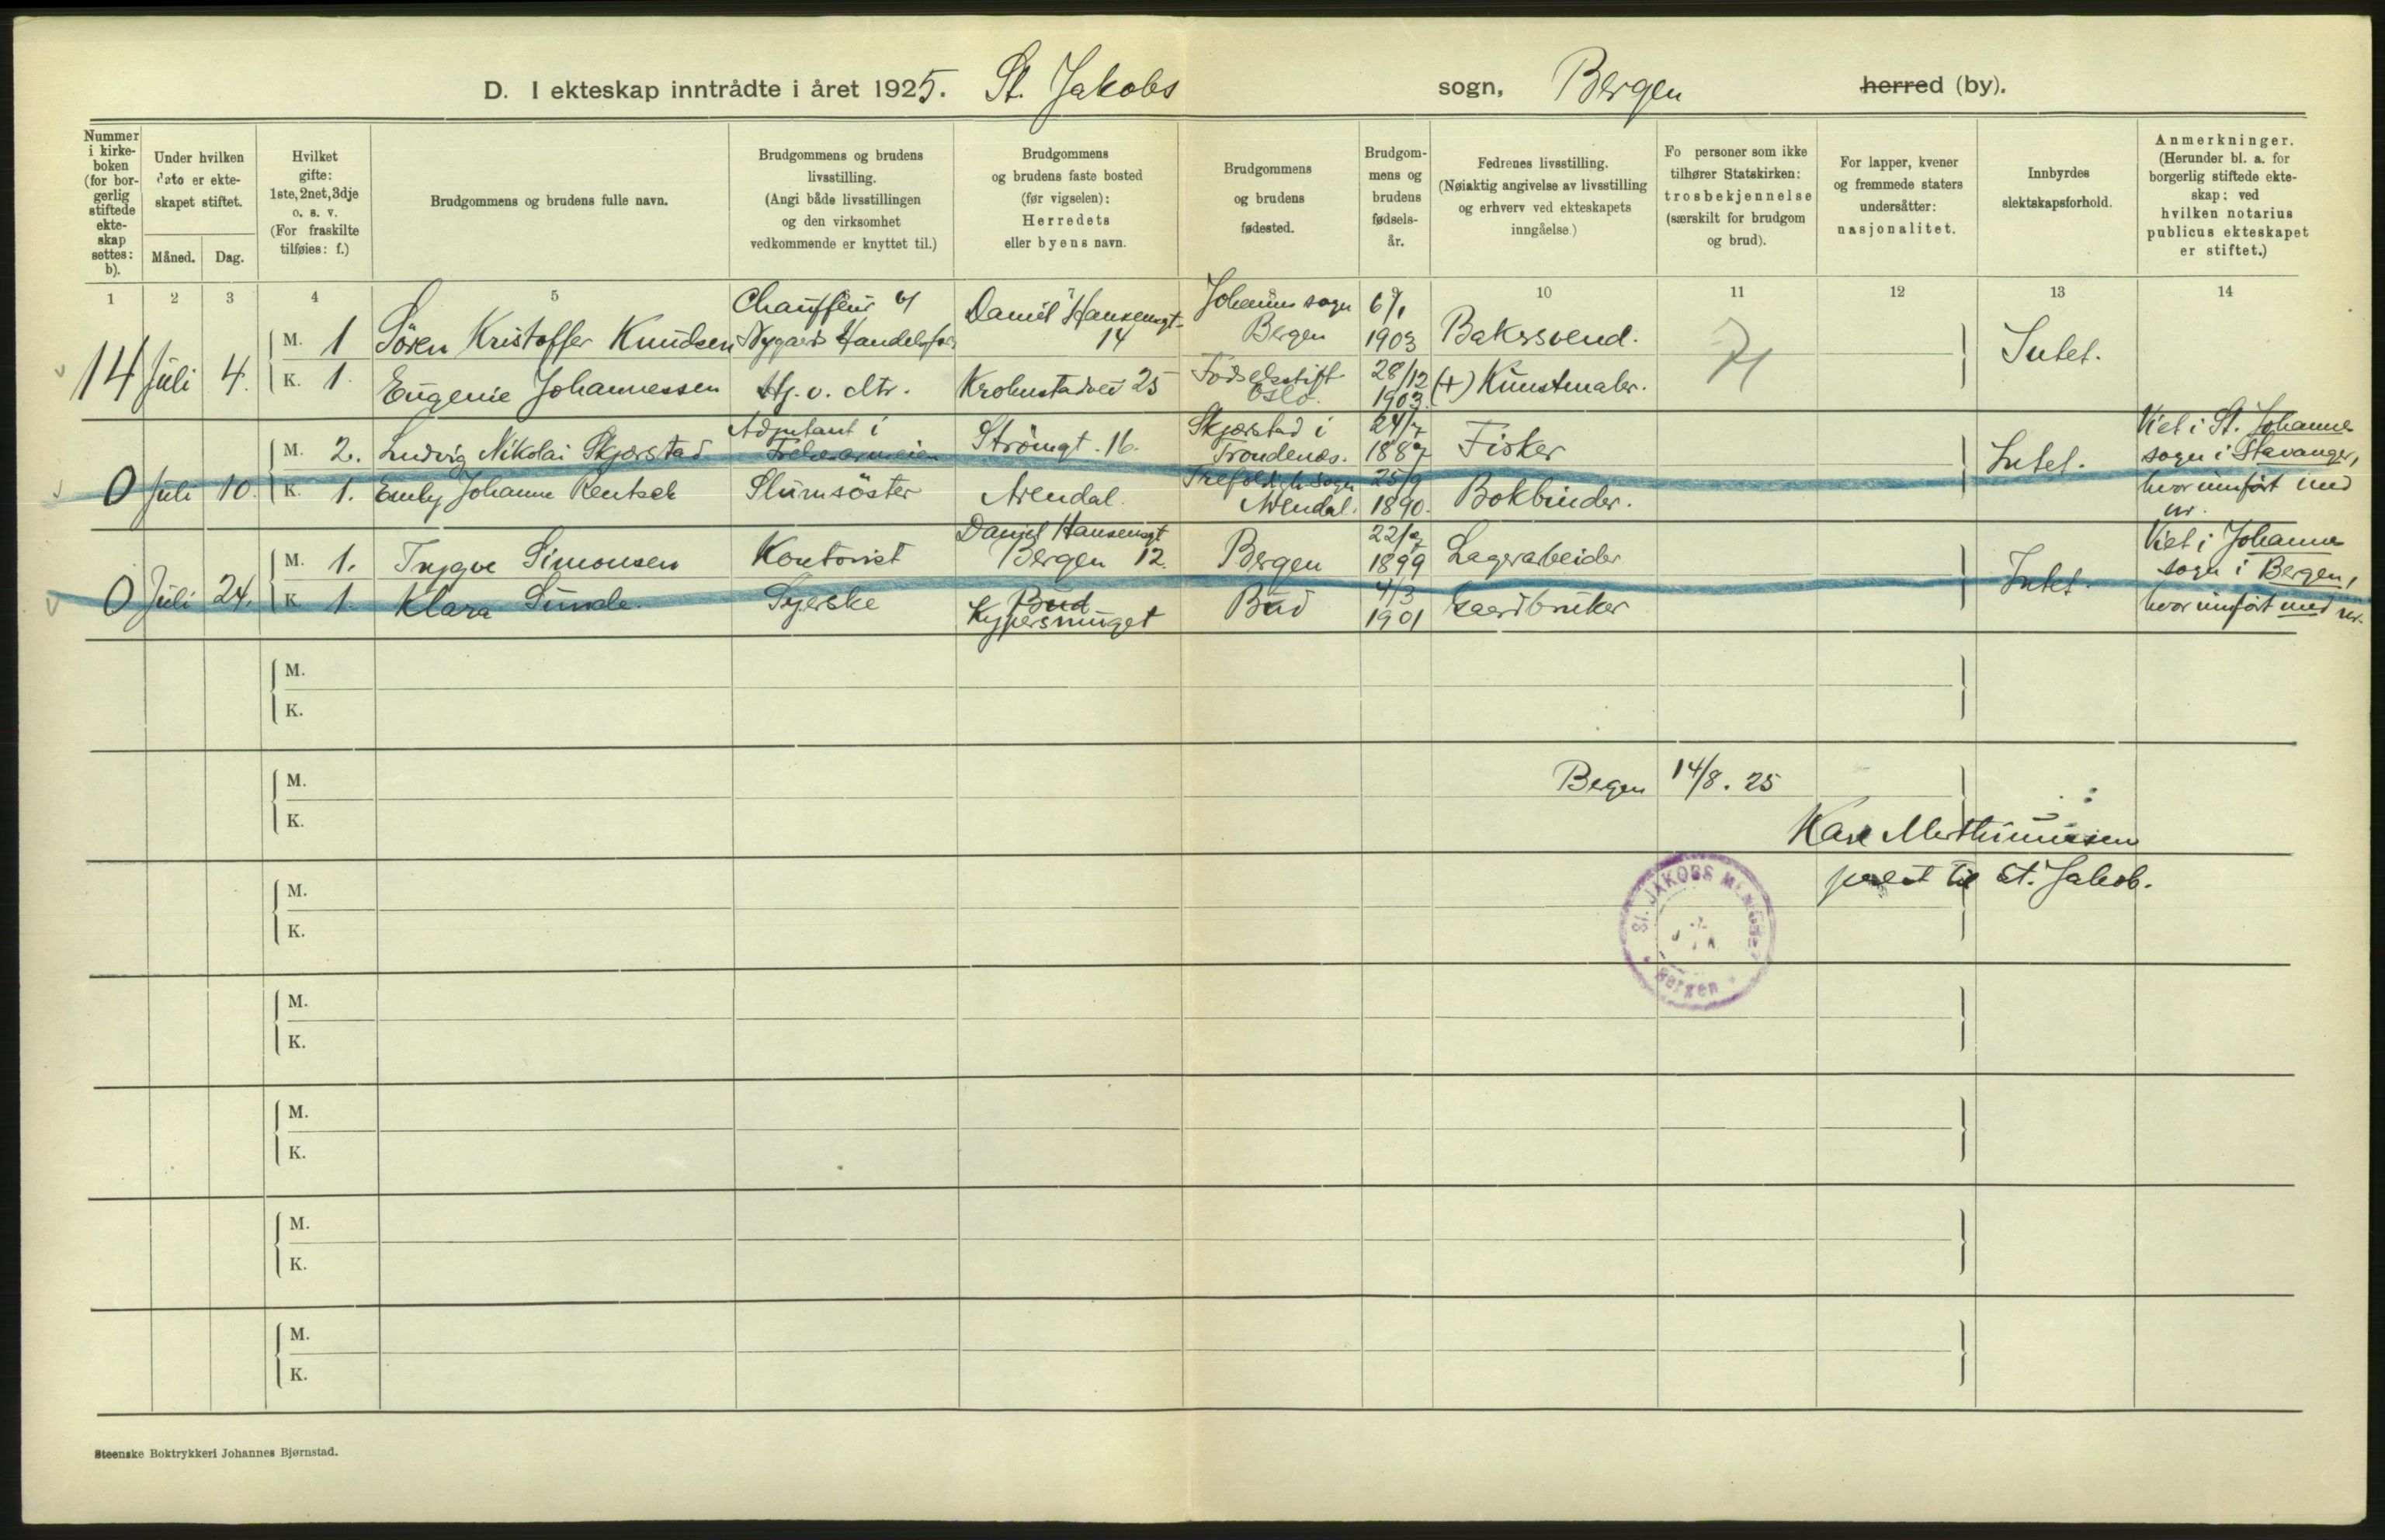 D. I ekteskap inntrådte i året 1925. St. Jakobs sogn, Bergen herred (by).
Nummer i kirke-boken (for bor-gerlig stiftede ekte-skap settes: b).
Under hvilken dato er ekte-skapet stiftet.
Måned. Dag.
Hvilket gifte: 1ste, 2net, 3dje o. s. v. (For fraskilte tilføies: f.)
Brudgommens og brudens fulle navn.
Brudgommens og brudens livsstilling. (Angi både livsstillingen og den virksomhet vedkommende er knyttet til.)
Brudgommens og brudens faste bosted (før vigselen): Herredets eller byens navn.
Brudgommens og brudens fødested.
Brudgom-mens og brudens fødsels-år.
Fedrenes livsstilling. (Nøiaktig angivelse av livsstilling og erhverv ved ekteskapets inngåelse.)
Fo personer som ikke tilhører Statskirken: trosbekjennelse (særskilt for brudgom og brud).
For lapper, kvener og fremmede staters undersåtter: nasjonalitet.
Innbyrdes slektskapsforhold.
Anmerkninger. (Herunder bl. a. for borgerlig stiftede ekte-skap: ved hvilken notarius publicus ekteskapet er stiftet.)
1 2 3 4 5 7 9 10 11 12 13 14
14 Juli 4. M. 1 Sören Kristoffer Knudsen Chauffeur v/ Nygaards Handelsfor. Daniel Hansensgt. 14 Johannes sogn Bergen 6/1 1903 Bakersvend. Intet.
K. 1. Eugenie Johannessen Hj. v. Mtr. Krohnstadvei 25 Födselsstift. Oslo. 28/12 1903. (+) Kunstmaler.
0 Juli 10. M. 2. Ludvig Nikolai Skjærstad Adjutant i Frelsesarmeien Strömgt. 16. Skjærstad i Trondenæs. 24/7 1887 Fisker Intet. Viet i St. Johannes sogn i Stavanger, hvor innført med nr.
K. 1. Emly Johanne Rentsch Slumsöster Arendal. Trefoldigh. sogn Arendal. 25/9 1890. Bokbinder.
0 Juli 24. M. 1. Trygve Simonsen Kontorist Daniel Hansensgt Bergen 12. Bergen 22/9 1899 Lagerarbeider Intet. Viet i Johannes sogn i Bergen, hvor innført med nr.
K. 1. Klara Sunde. Syerske Bud Bud 4/3 1901 Gaardbruker
M.
K.
M.
K.
Bergen 14/8. 25
Karl Marthinussen
prest til St. Jakob.
M.
K.
ST. JAKOBS MENIGHET
Bergen
M.
K.
M.
K.
M.
K.
M.
K.
Steenske Boktrykkeri Johannes Bjørnstad.